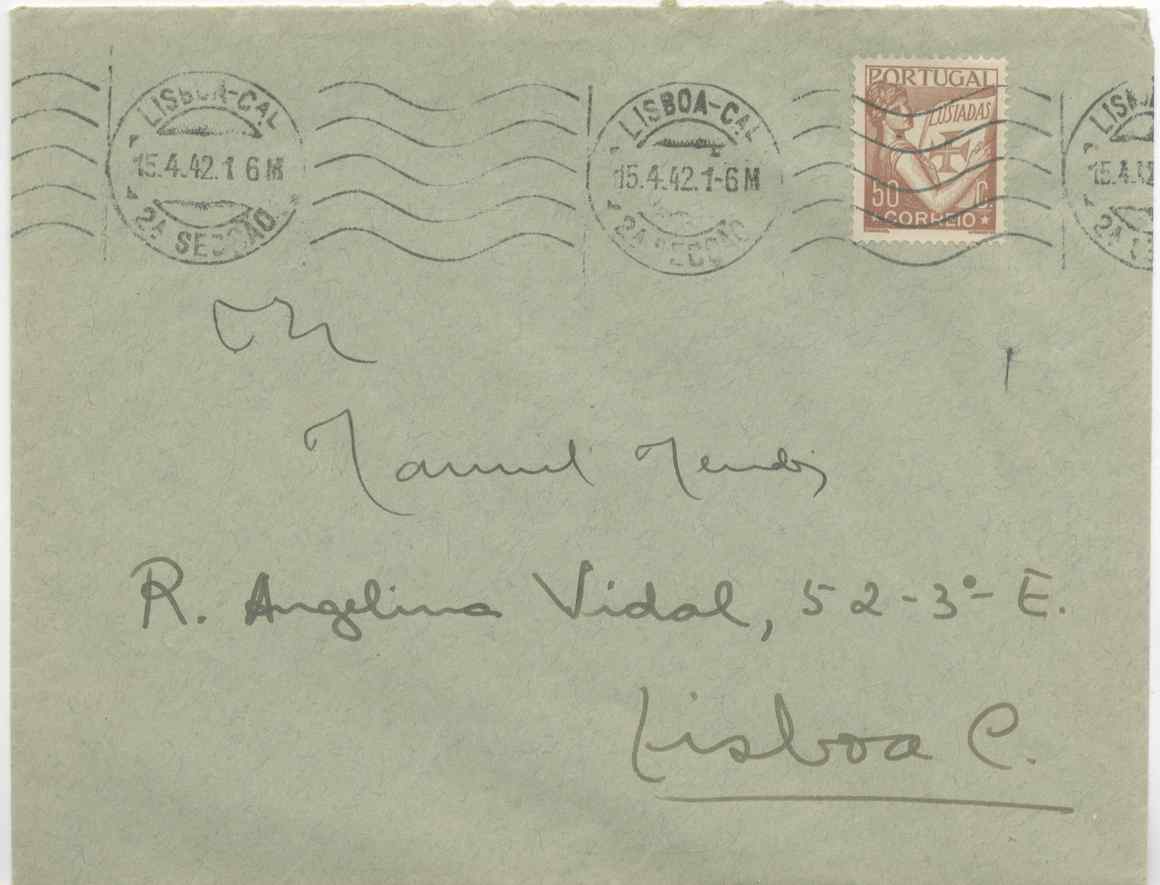 LISBOA-CAL
15.4.42.1 6 M
2A SECCAO
LISBOA-CAL
15.4.42.1-6 M
2A SECCAO
PORTUGAL
LUSIADAS
50 C.
CORREIO
LISBOA
15.4.42
2A
Manuel Mendes
R. Angelina Vidal, 52-3º-E.
Lisboa C.